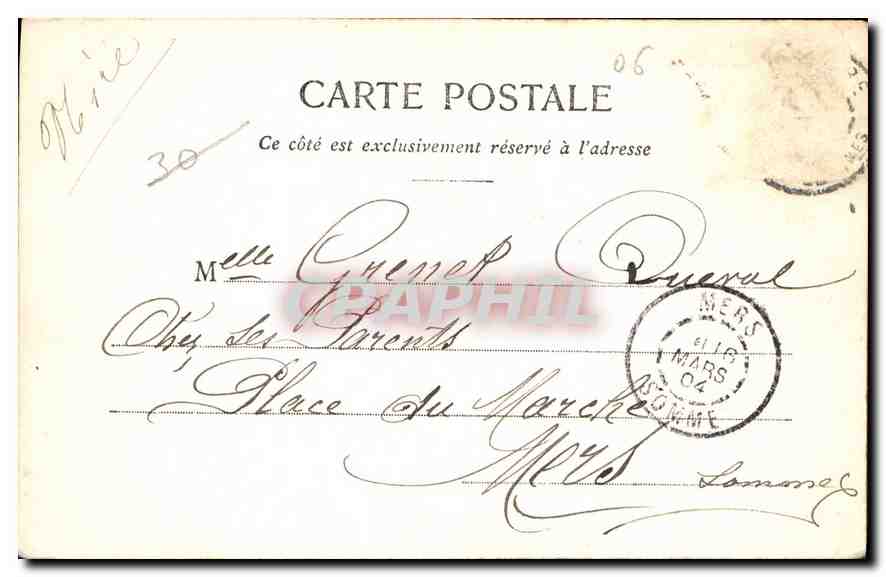 06
CARTE POSTALE
Ce côté est exclusivement réservé à l'adresse
30
Melle Grenet Queval
CPAPHIL
Chez ses Parents
Place du Marché
Mers Somme
MERS
16
MARS
04
SOMME